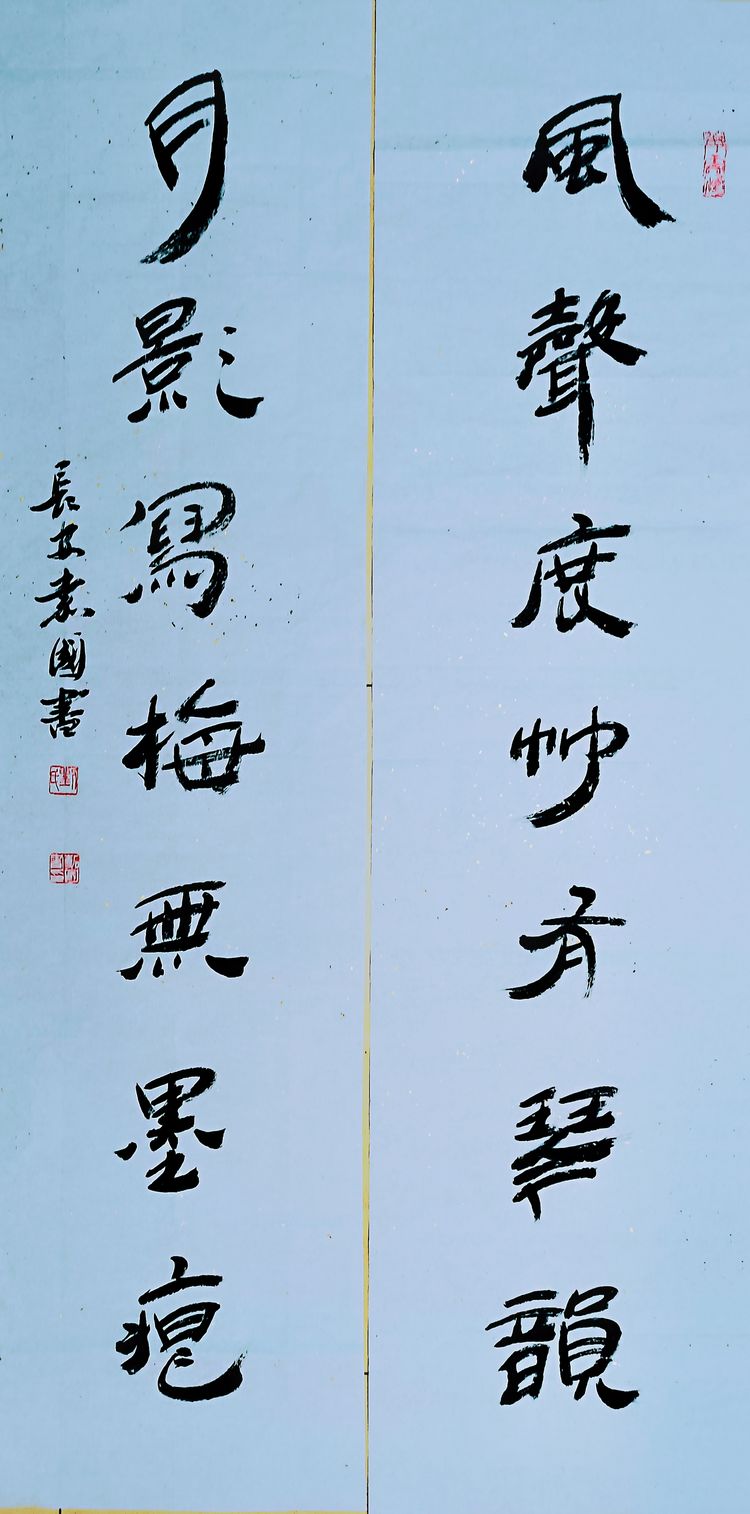 風聲度竹有琴韻
月影寫梅無墨痕
長安袁國書